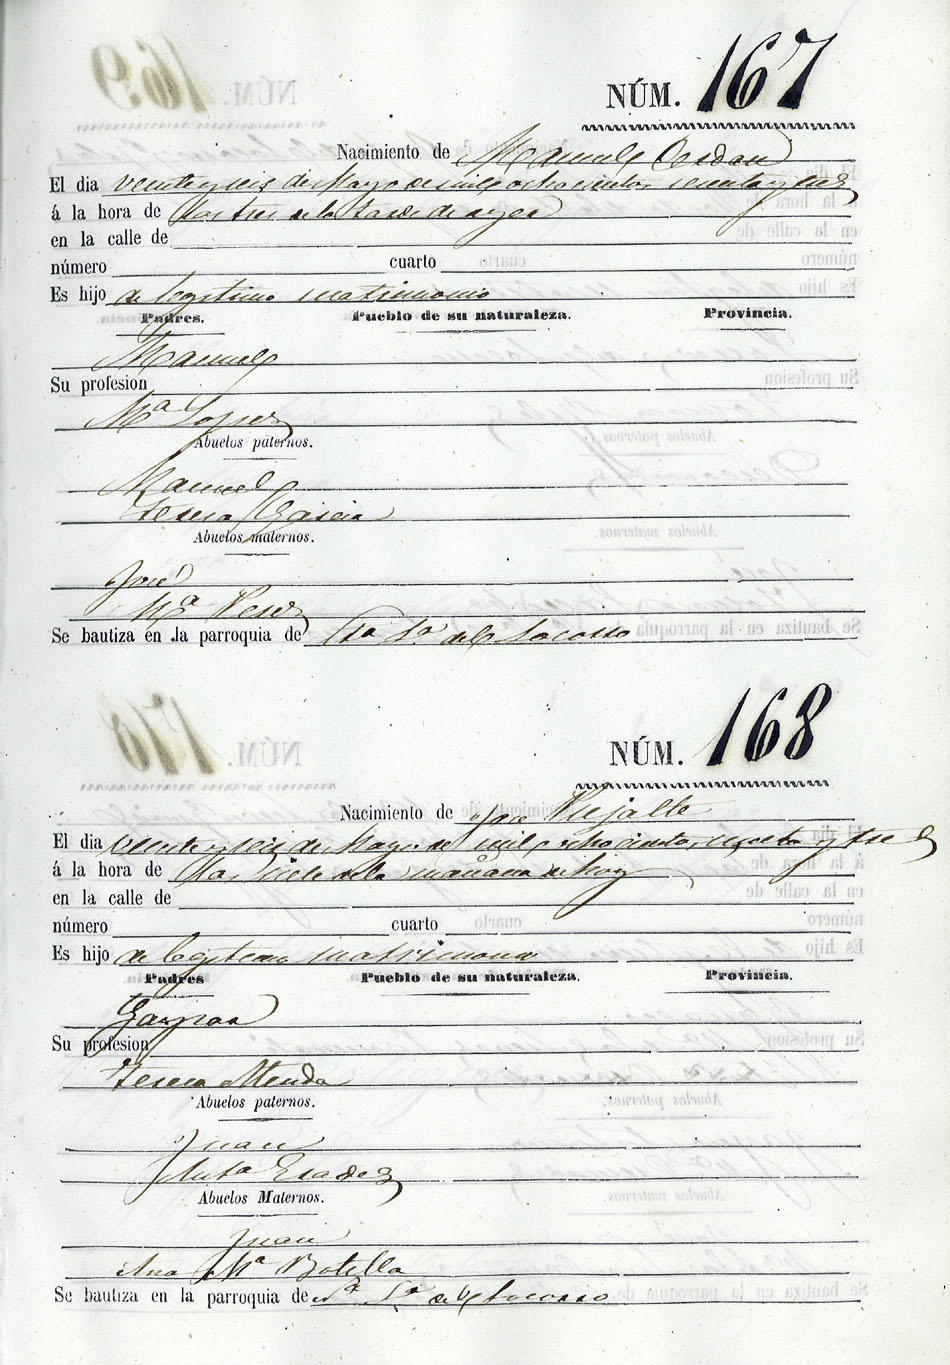 NÚM. 167
Nacimiento de Manuel Cerdan
El dia veinte y seis de Mayo de mil ocho cientos sesenta y tres
á la hora de las tres de la tarde de ayer
en la calle de
número cuarto
Es hijo de legitimo matrimonio
Padres. Pueblo de su naturaleza. Provincia.
Manuel
Su profesion
Mª Lopez
Abuelos paternos.
Manuel
Teresa Garcia
Abuelos maternos.
José
Mª Perez
Se bautiza en la parroquia de Nª Sª del Socorro
NÚM. 168
Nacimiento de José
El dia veinte y seis de Mayo de mil ocho cientos sesenta y tres
á la hora de las siete de la mañana de hoy
en la calle de
número cuarto
Es hijo de legitimo matrimonio
Padres Pueblo de su naturaleza. Provincia.
Gaspar
Su profesion
Teresa
Abuelos paternos.
Juan
Antª
Abuelos Maternos.
Juan
Ana Mª Botella
Se bautiza en la parroquia de Nª Sª del Socorro